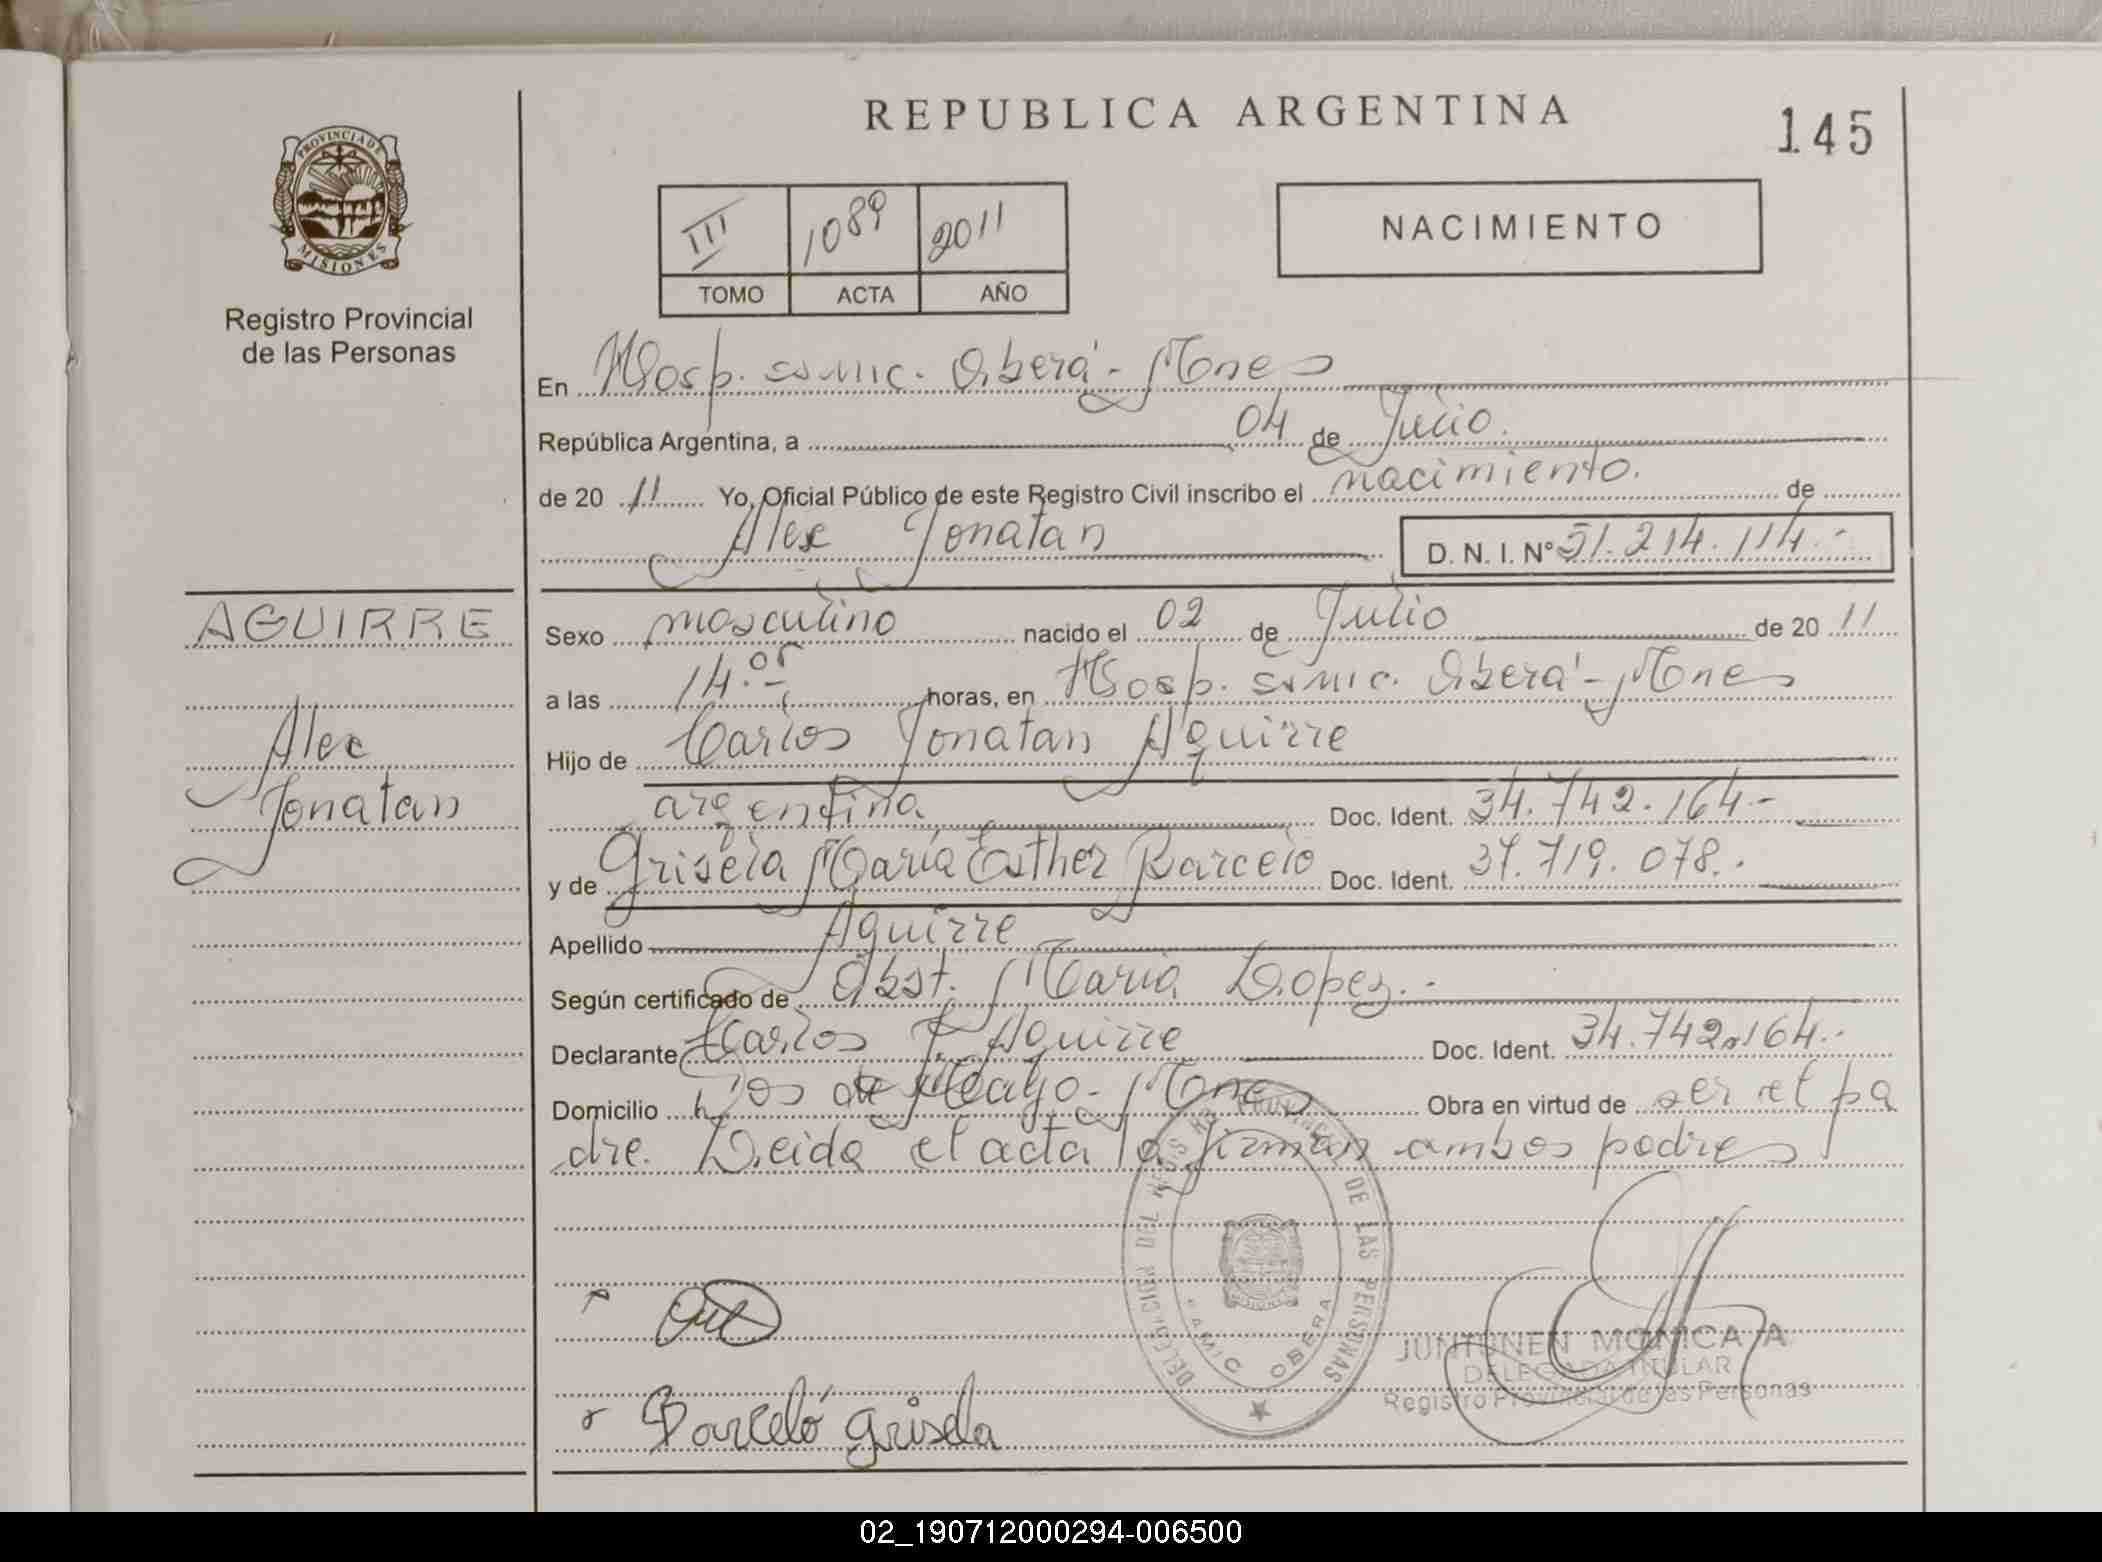 REPUBLICA ARGENTINA
145
PROVINCIA DE
MISIONES
Registro Provincial
de las Personas
III 1089 2011
TOMO ACTA AÑO
NACIMIENTO
En Hosp. ssmic. Oberá - Mones
República Argentina, a 04 de Julio.
de 20 11 Yo, Oficial Público de este Registro Civil inscribo el nacimiento. de
Alex Jonatan D. N. I. N° 51.214.114.-
AGUIRRE
Alex
Jonatan
Sexo masculino nacido el 02 de Julio de 20 11
a las 14.05 horas, en Hosp. ssmic. Oberá - Mones
Hijo de Carlos Jonatan Aguirre
argentina Doc. Ident. 34.742.164.-
y de Grisela María Esther Barcelo Doc. Ident. 37.719.078.-
Apellido Aguirre
Según certificado de Obst. Maria Lopez.-
Declarante Carlos J. Aguirre Doc. Ident. 34.742.164.-
Domicilio de Mayo - Mones Obra en virtud de ser el pa
dre. Leida el acta la firman ambos padres
DELEGACION DEL REGISTRO PROVINCIAL DE LAS PERSONAS
SAMIC OBERA
JUNTUNEN MONICA A
DELEGADA TITULAR
Registro Provincial de las Personas
Barceló Grisela
02_190712000294-006500